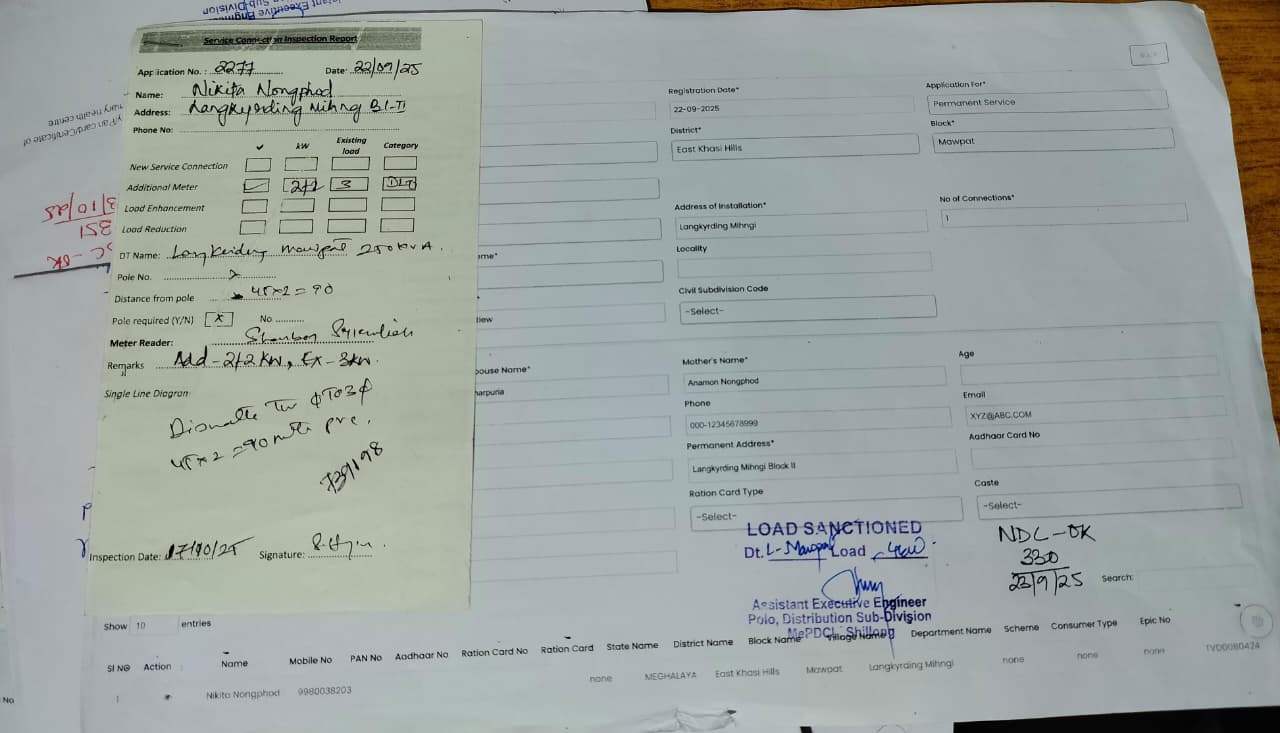 Service Connection Inspection Report
Application No. : 2277 Date: 22/09/25
Name: Nikita Nongphod
Address: Langkyrding Mihng Bl-II
Phone No:
✓ kW Existing load Category
New Service Connection
Additional Meter ✓ 2+2 3 DLT
Load Enhancement
Load Reduction
DT Name: Mawpat 250 KVA.
Pole No.
Distance from pole 45×2=90
Pole required (Y/N) X No
Meter Reader:
Remarks Add-2+2 KW, Ex-3KW.
Single Line Diagram
TO 3φ
45×2=90
739198
Inspection Date: 17/10/25 Signature:
Registration Date*
22-09-2025
Application For*
Permanent Service
District*
East Khasi Hills
Block*
Mawpat
Address of Installation*
Langkyrding Mihngi
No of Connections*
1
Locality
Civil Subdivision Code
-Select-
ouse Name*
harpuria
Mother's Name*
Anamon Nongphod
Age
Phone
000-12345678999
Email
XYZ@ABC.COM
Permanent Address*
Langkyrding Mihngi Block II
Aadhaar Card No
Ration Card Type
-Select-
Caste
-Select-
LOAD SANCTIONED
Dt. L-Mawpat Load 4KW
Assistant Executive Engineer
Polo, Distribution Sub-Division
MePDCL, Shillong
NDC-OK
330
23/9/25
Search:
Show 10 entries
Sl No Action Name Mobile No PAN No Aadhaar No Ration Card No Ration Card State Name District Name Block Name Village Name Department Name Scheme Consumer Type Epic No
1 Nikita Nongphod 9980038203 none MEGHALAYA East Khasi Hills Mawpat Langkyrding Mihngi none none none TVD0080424
3/10/25
351
-OK
y/Pan card/Certificate of
mary health centre
Sub-Division